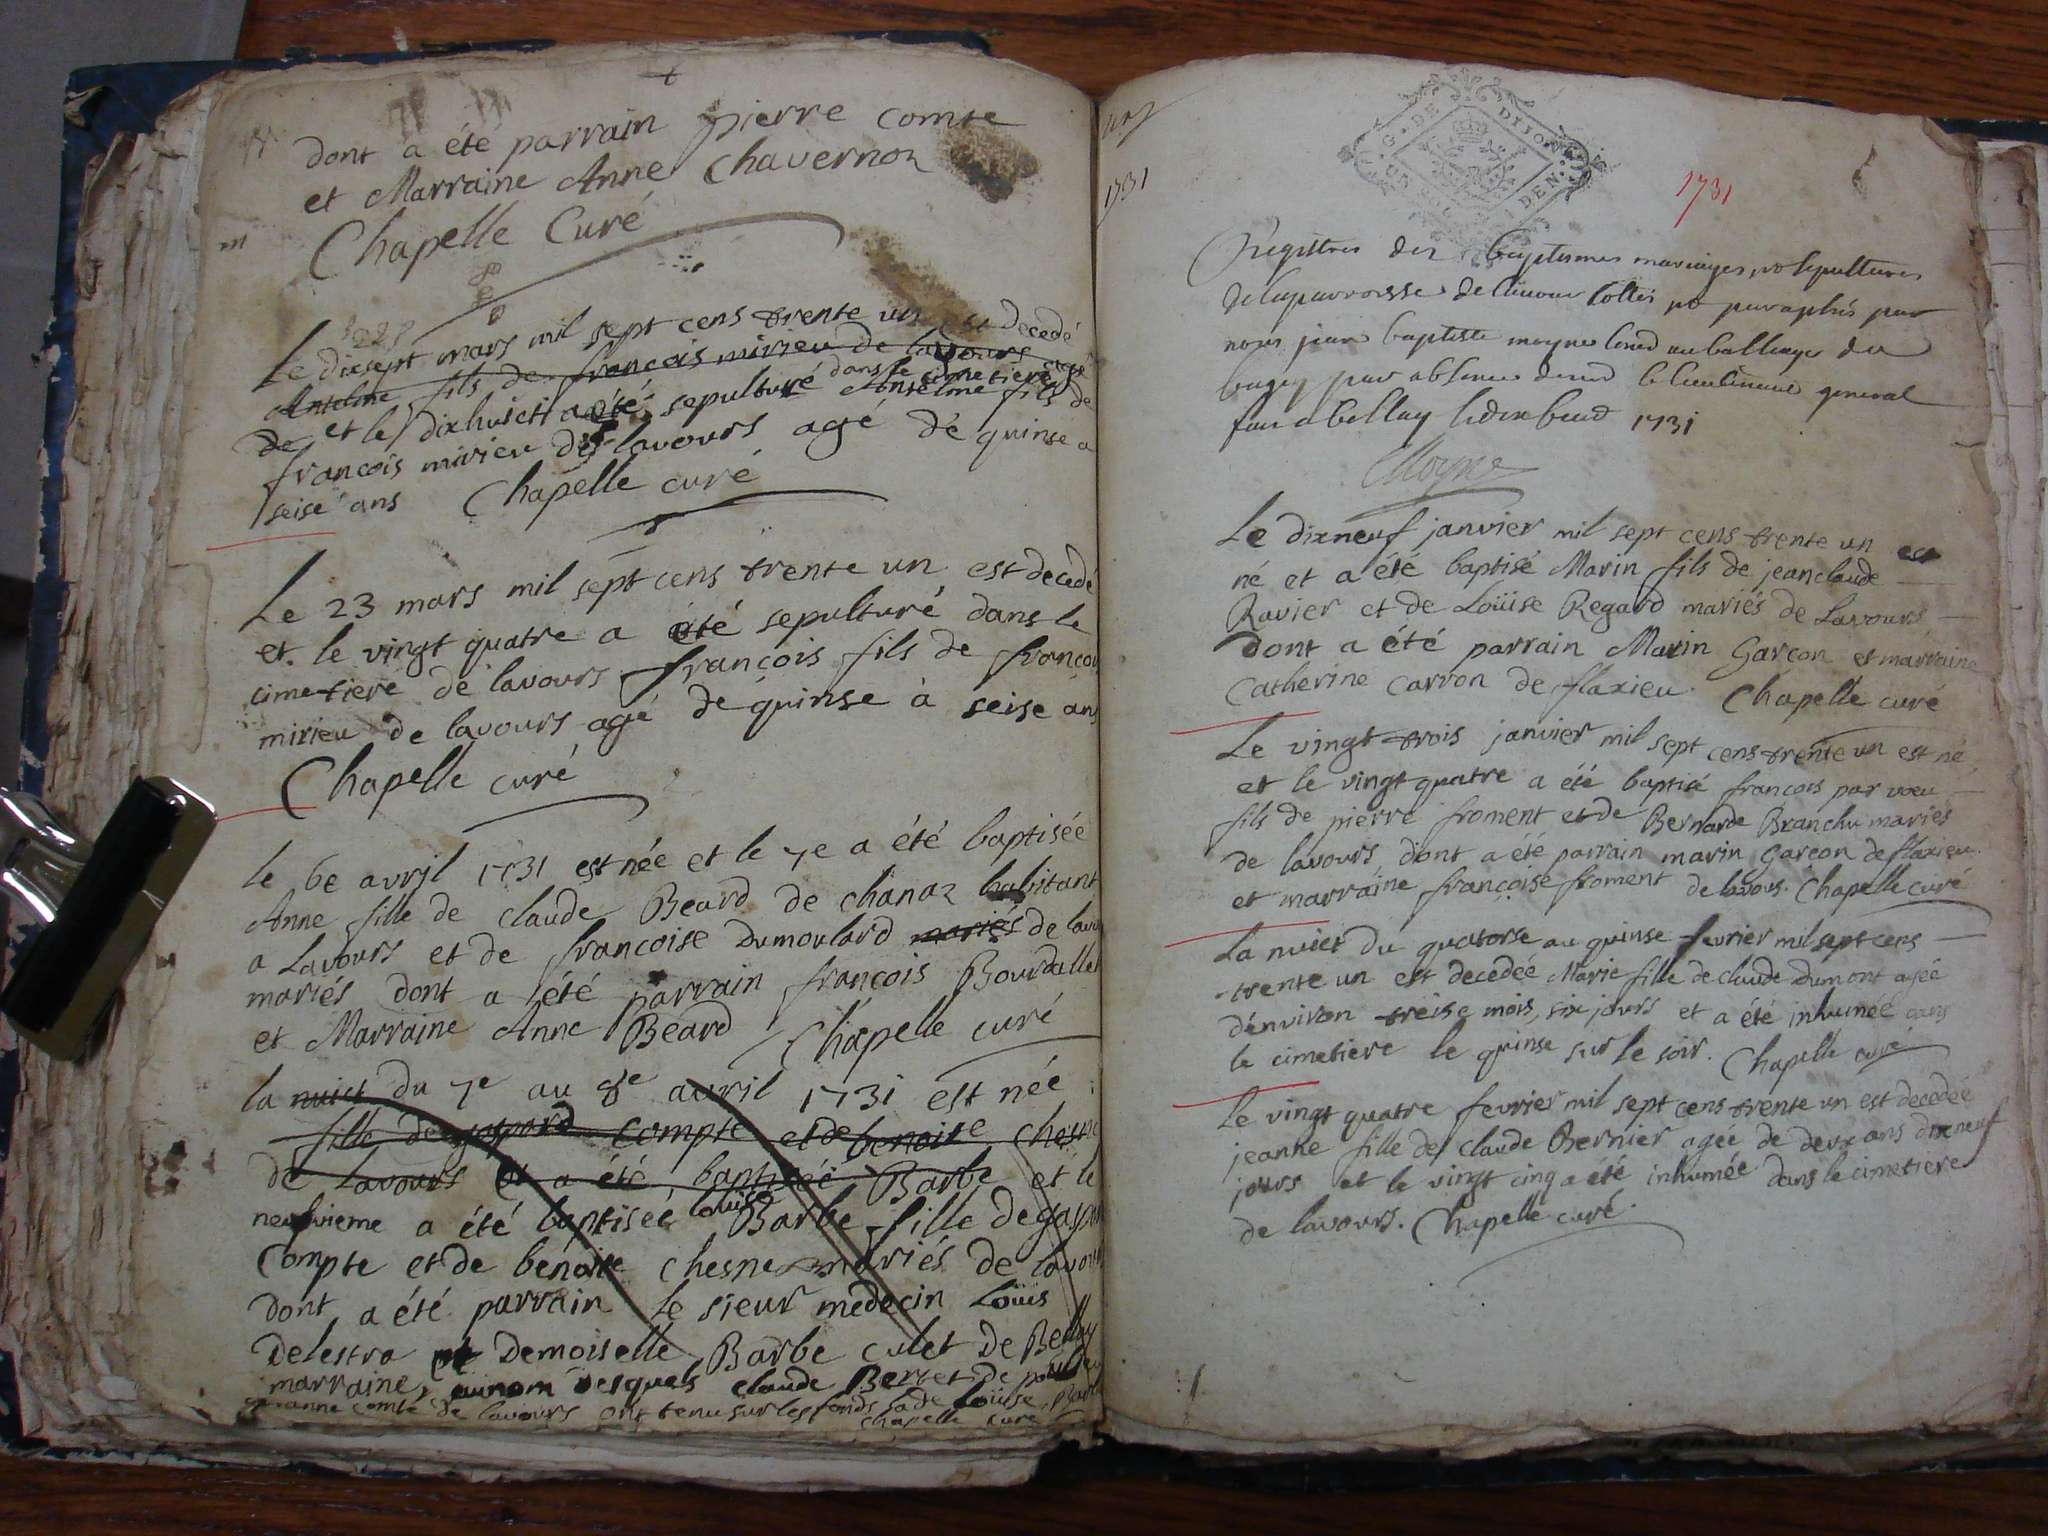 dont a été parrain pierre comte
et Marraine Anne Chavernon
Chapelle Curé
Le dixsept mars mil sept cens trente un est decedé
Antelme fils de françois mirieu de lavours agé
de et le dixhuict a été sepulturé dans le cimetiere Anselme fils de
françois mirieu de lavours agé de quinse a
seise ans Chapelle curé
Le 23 mars mil sept cens trente un est decedé
et le vingt quatre a été sepulturé dans le
cimetiere de lavours françois fils de françois
mirieu de lavours agé de quinse à seise ans
Chapelle curé
le 6e avril 1731 est née et le 7e a été baptisée
Anne fille de claude Beard de chanaz habitant
a Lavours et de françoise Dumoulard mariés de lavours
mariés dont a été parrain françois Bourdallet
et Marraine Anne Béard Chapelle curé
la nuict du 7e au 8e avril 1731 est née
fille de gaspard Compte et de benoite chesne
de Lavours et a été baptisée Barbe et le
neufvieme a été baptisée louise Barbe fille de gaspard
Compte et de benoite Chesne mariés de lavours
dont a été parrain le sieur medecin Loüis
Delestra et Demoiselle Barbe culet de Belley
marraine, au nom desquels claude Berset de
anne comte de lavours ont tenu sur les fonds lade Loüise Barbe
Chapelle curé
1731
G. DE DIJON
DEN.
1731
Registres des baptesmes mariages, et sepultures
de la parroisse de lavour cottés et paraphés par
nous jean baptiste moyne au balliage du
bugey par absence de le lieutenant general
fait a belley 1731
Moyne
Le dixneuf janvier mil sept cens trente un est
né et a été baptisé Marin fils de jeanclaude
Ravier et de Loüise Regard mariés de Lavours
dont a été parrain Marin Garçon et marraine
Catherine Carron de flaxieu. Chapelle curé
Le vingt trois janvier mil sept cens trente un est né
et le vingt quatre a été baptisé françois par vœu
fils de pierre froment et de Bernarde Branchu mariés
de lavours, dont a été parrain marin Garçon de flaxieu.
et marraine françoise froment de lavours. Chapelle curé
La nuict du quatorse au quinse fevrier mil sept cens
trente un est decedée Marie fille de claude Dumont agée
d'environ treise mois, six jours et a été inhumée dans
le cimetiere le quinse sur le soir. Chapelle curé
Le vingt quatre fevrier mil sept cens trente un est decedée
jeanne fille de claude Bernier agée de deux ans dixneuf
jours et le vingt cinq a été inhumée dans le cimetiere
de lavours. Chapelle curé.